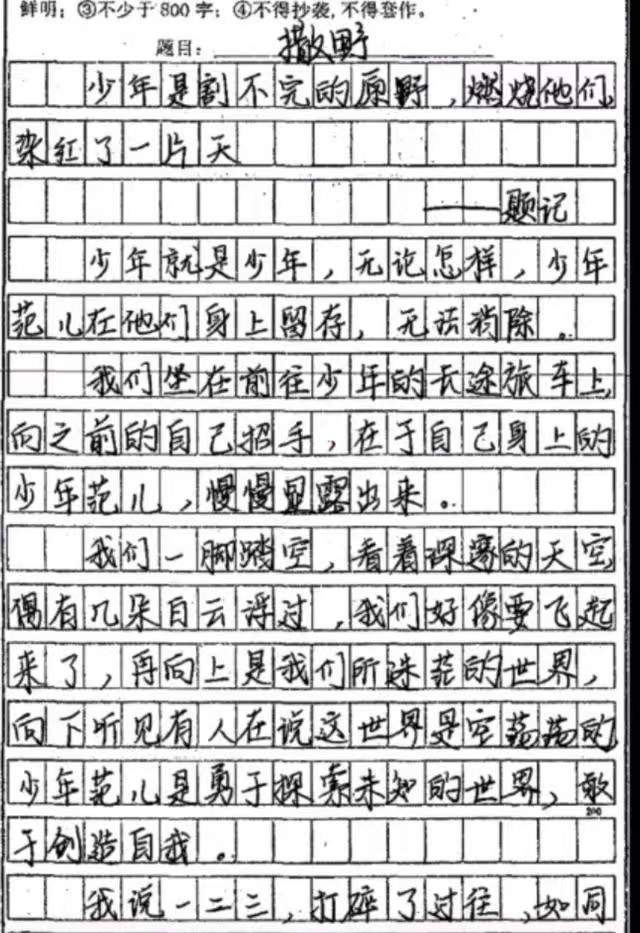 鲜明；③不少于800字；④不得抄袭，不得套作。
题目：撒野
少年是割不完的原野，燃烧他们，
染红了一片天
——题记
少年就是少年，无论怎样，少年
范儿在他们身上留存，无法消除。
我们坐在前往少年的长途旅车上，
向之前的自己招手，在于自己身上的
少年范儿，慢慢显露出来。
我们一脚踏空，看着深邃的天空，
偶有几朵白云浮过，我们好像要飞起
来了，再向上是我们所迷茫的世界，
向下听见有人在说这世界是空荡荡的，
少年范儿是勇于探索未知的世界，敢
200
于创造自我。
我说一二三，打碎了过往，如同